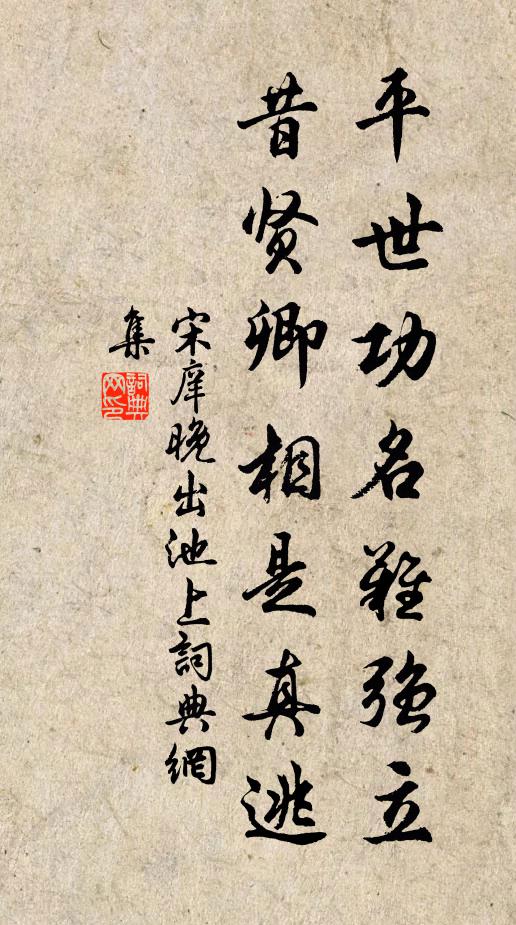 平世功名难强立
昔贤卿相是真逃
宋庠晚出池上詞典網
集
詞典
网印